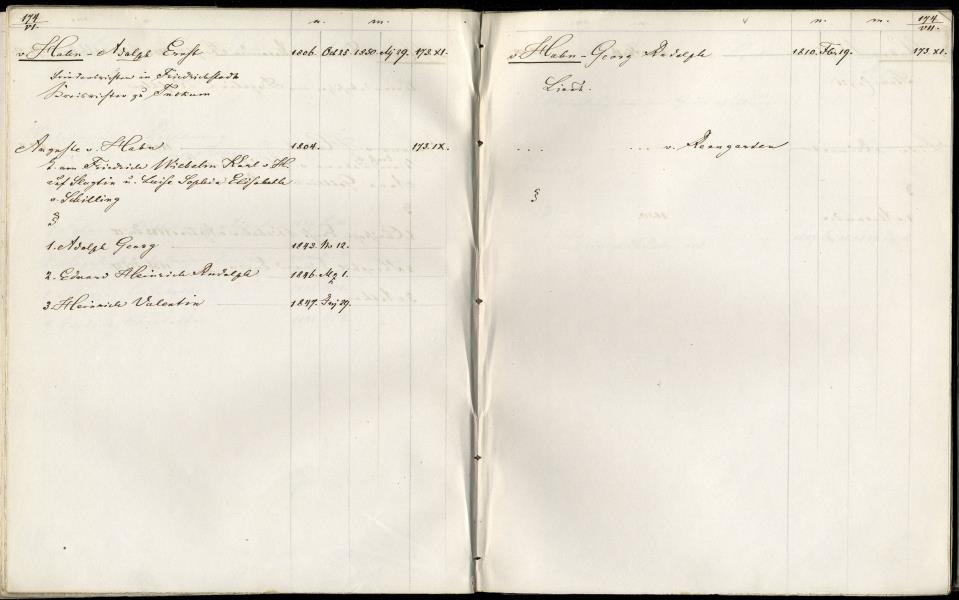 174
VI.
n. m.
v. Hahn - Adolph Ernst 1806. Oct 25. 1850. Mz 29. 173. XI.
Friedensrichter in Friedrichstadt
Kreisrichter zu Tuckum
Auguste v. Hahn 1804. 173. IX.
T. von Friedrich Wilhelm Karl v. H.
auf u. Luise Sophia Elisabeth
v. Schilling
1. Adolph Georg 1843. 12.
2. Eduard Heinrich Rudolph 1846. 1.
3. Heinrich Valentin 1847. 29.
n. m. 174
VII.
v. Hahn - Georg Rudolph 1810. Fbr 19. 173. XI.
Lieut.
. . . . . . . v. Baumgarten